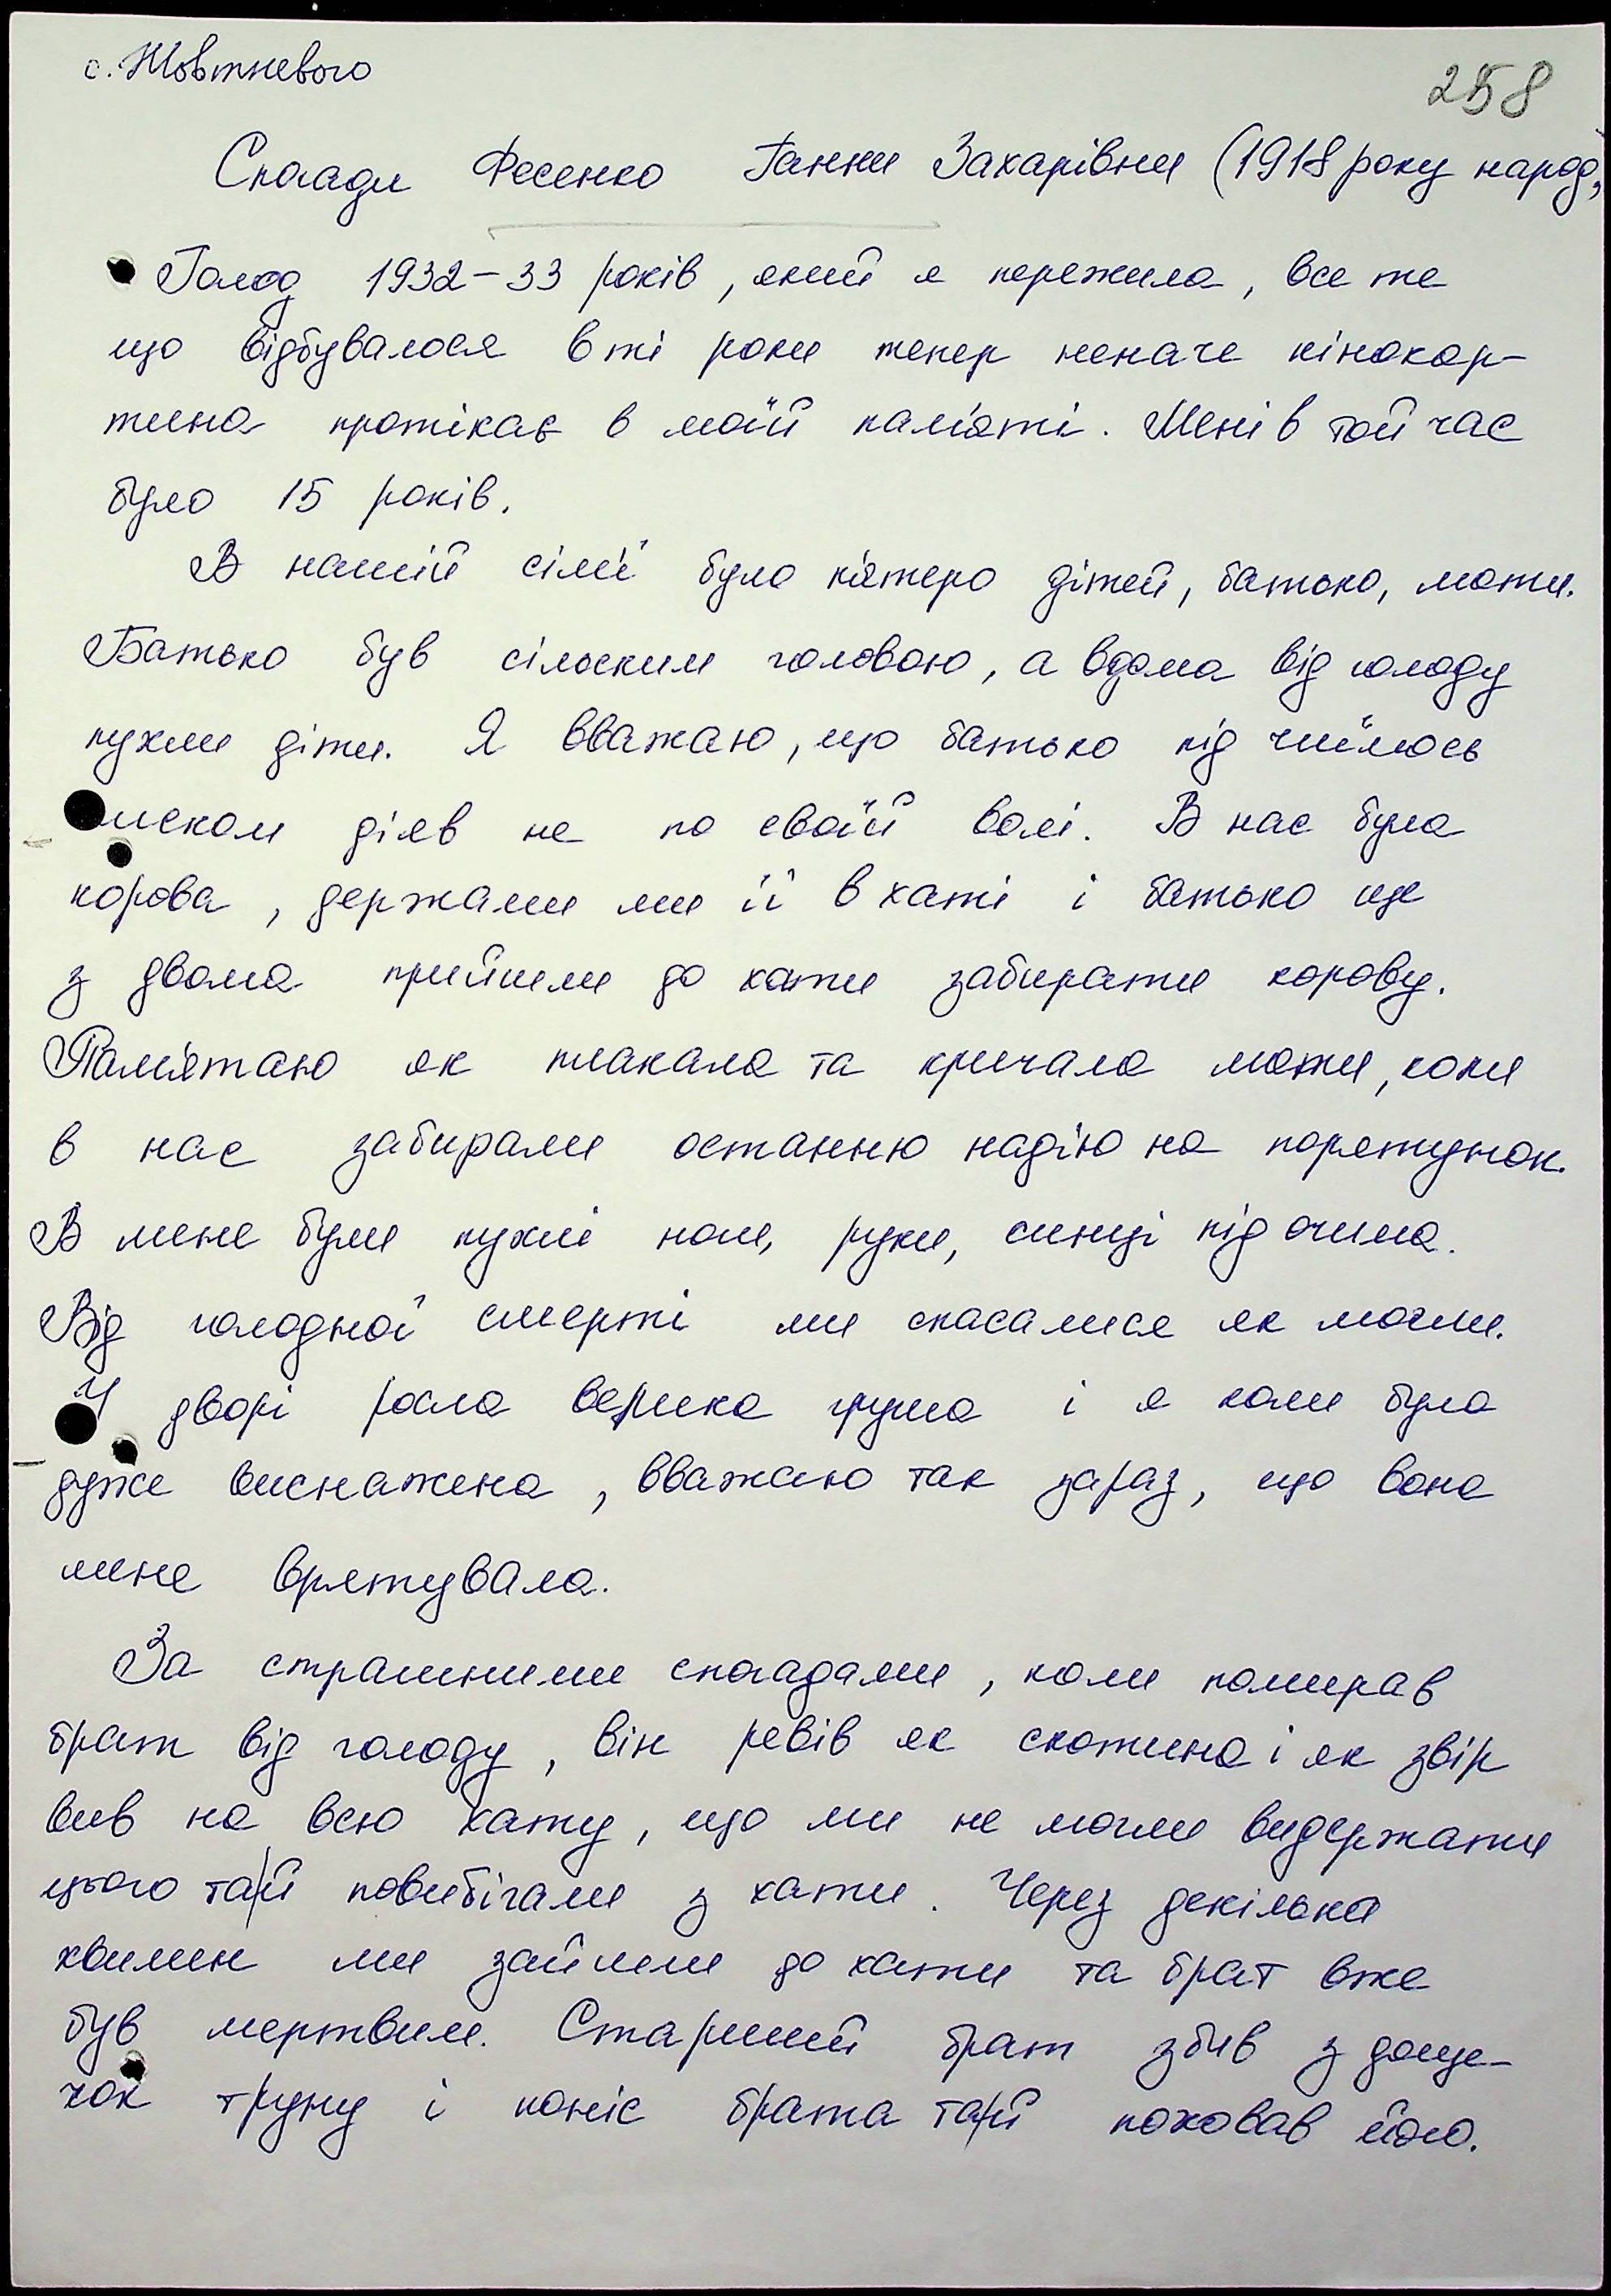 с. Жовтневого
258
Спогади Фесенко Ганни Захарівни (1918 року народ,
Голод 1932-33 років, який я пережила, все те
що відбувалося в ті роки тепер неначе кінокар-
тина протікає в моїй пам'яті. Мені в той час
було 15 років.
В нашій сім'ї було п'ятеро дітей, батько, мати.
Батько був сільским головою, а вдома від голоду
пухли діти. Я вважаю, що батько під чиїмось
тиском діяв не по своїй волі. В нас була
корова, держали ми її в хаті і батько ще
з двома прийшли до хати забирати корову.
Пам'ятаю як плакала та кричала мати, коли
в нас забирали останню надію на порятунок.
В мене були пухлі ноги, руки, синці під очима.
Від голодної смерті ми спасалися як могли.
У дворі росла велика груша і я коли була
дуже виснажена, вважаю так зараз, що вона
мене врятувала.
За страшними спогадами, коли помирав
брат від голоду, він ревів як скотина і як звір
вив на всю хату, що ми не могли видержати
цього та й повибігали з хати. Через декілька
хвилин ми зайшли до хати та брат вже
був мертвим. Старший брат збив з доще-
чок труну і поніс брата та й поховав його.